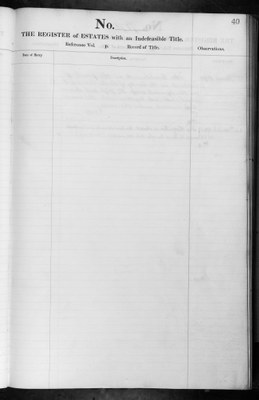 40
No.
THE REGISTER of ESTATES with an Indefeasible Title.
Reference Vol. p. Record of Title.
Observations.
Date of Entry
Description.